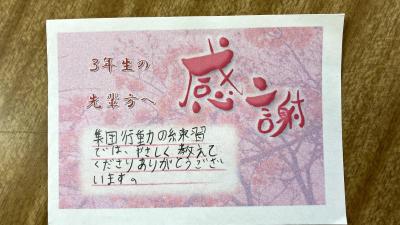 3年生の
先輩方へ
感謝
集団行動の練習
では、やさしく教えて
くださりありがとうござ
います。